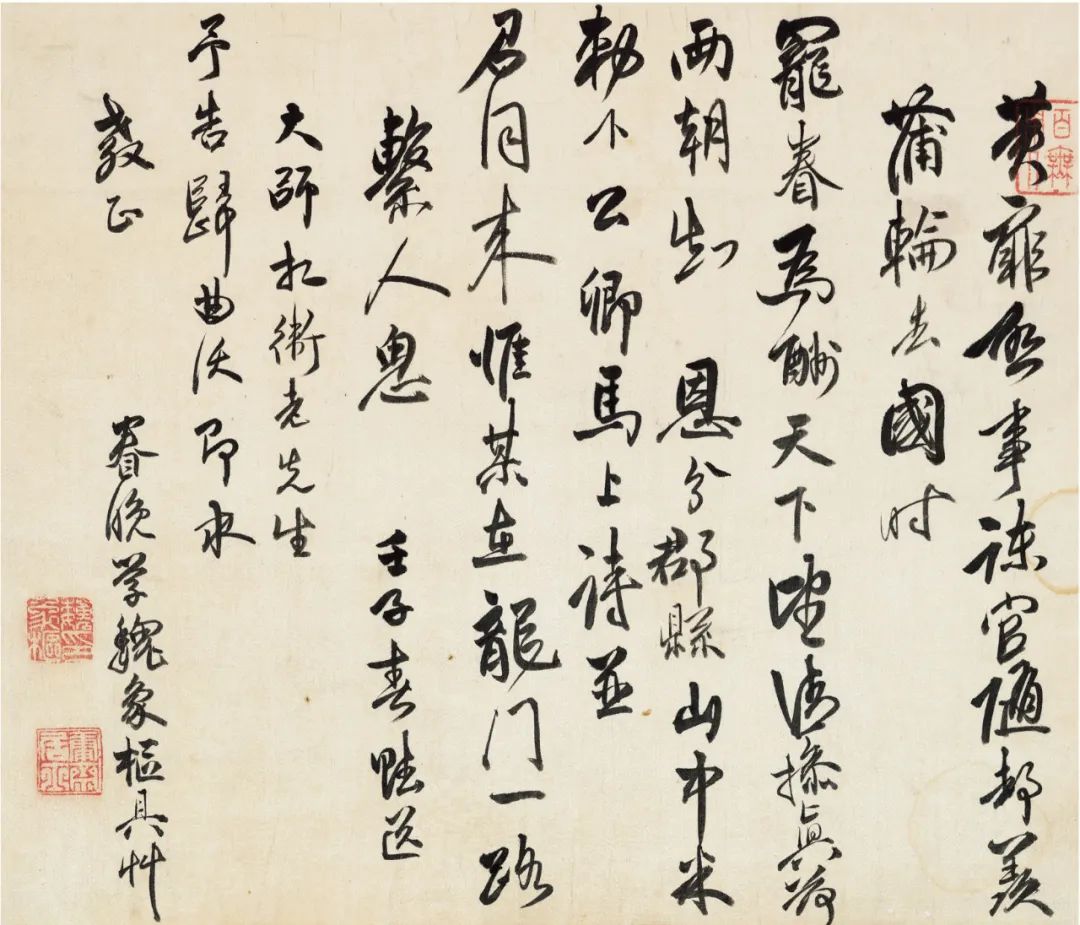 黄扉無事諫官随都羨
蒲輪去國时
寵眷為酬天下望清操真荷
兩朝知 恩分郡縣山中米
勅下公卿馬上詩並
召同来惟某在龍门一路
繫人思 壬子春賦送
大師相衛老先生
予告歸曲沃即求
教正 眷晚学魏象樞具艸